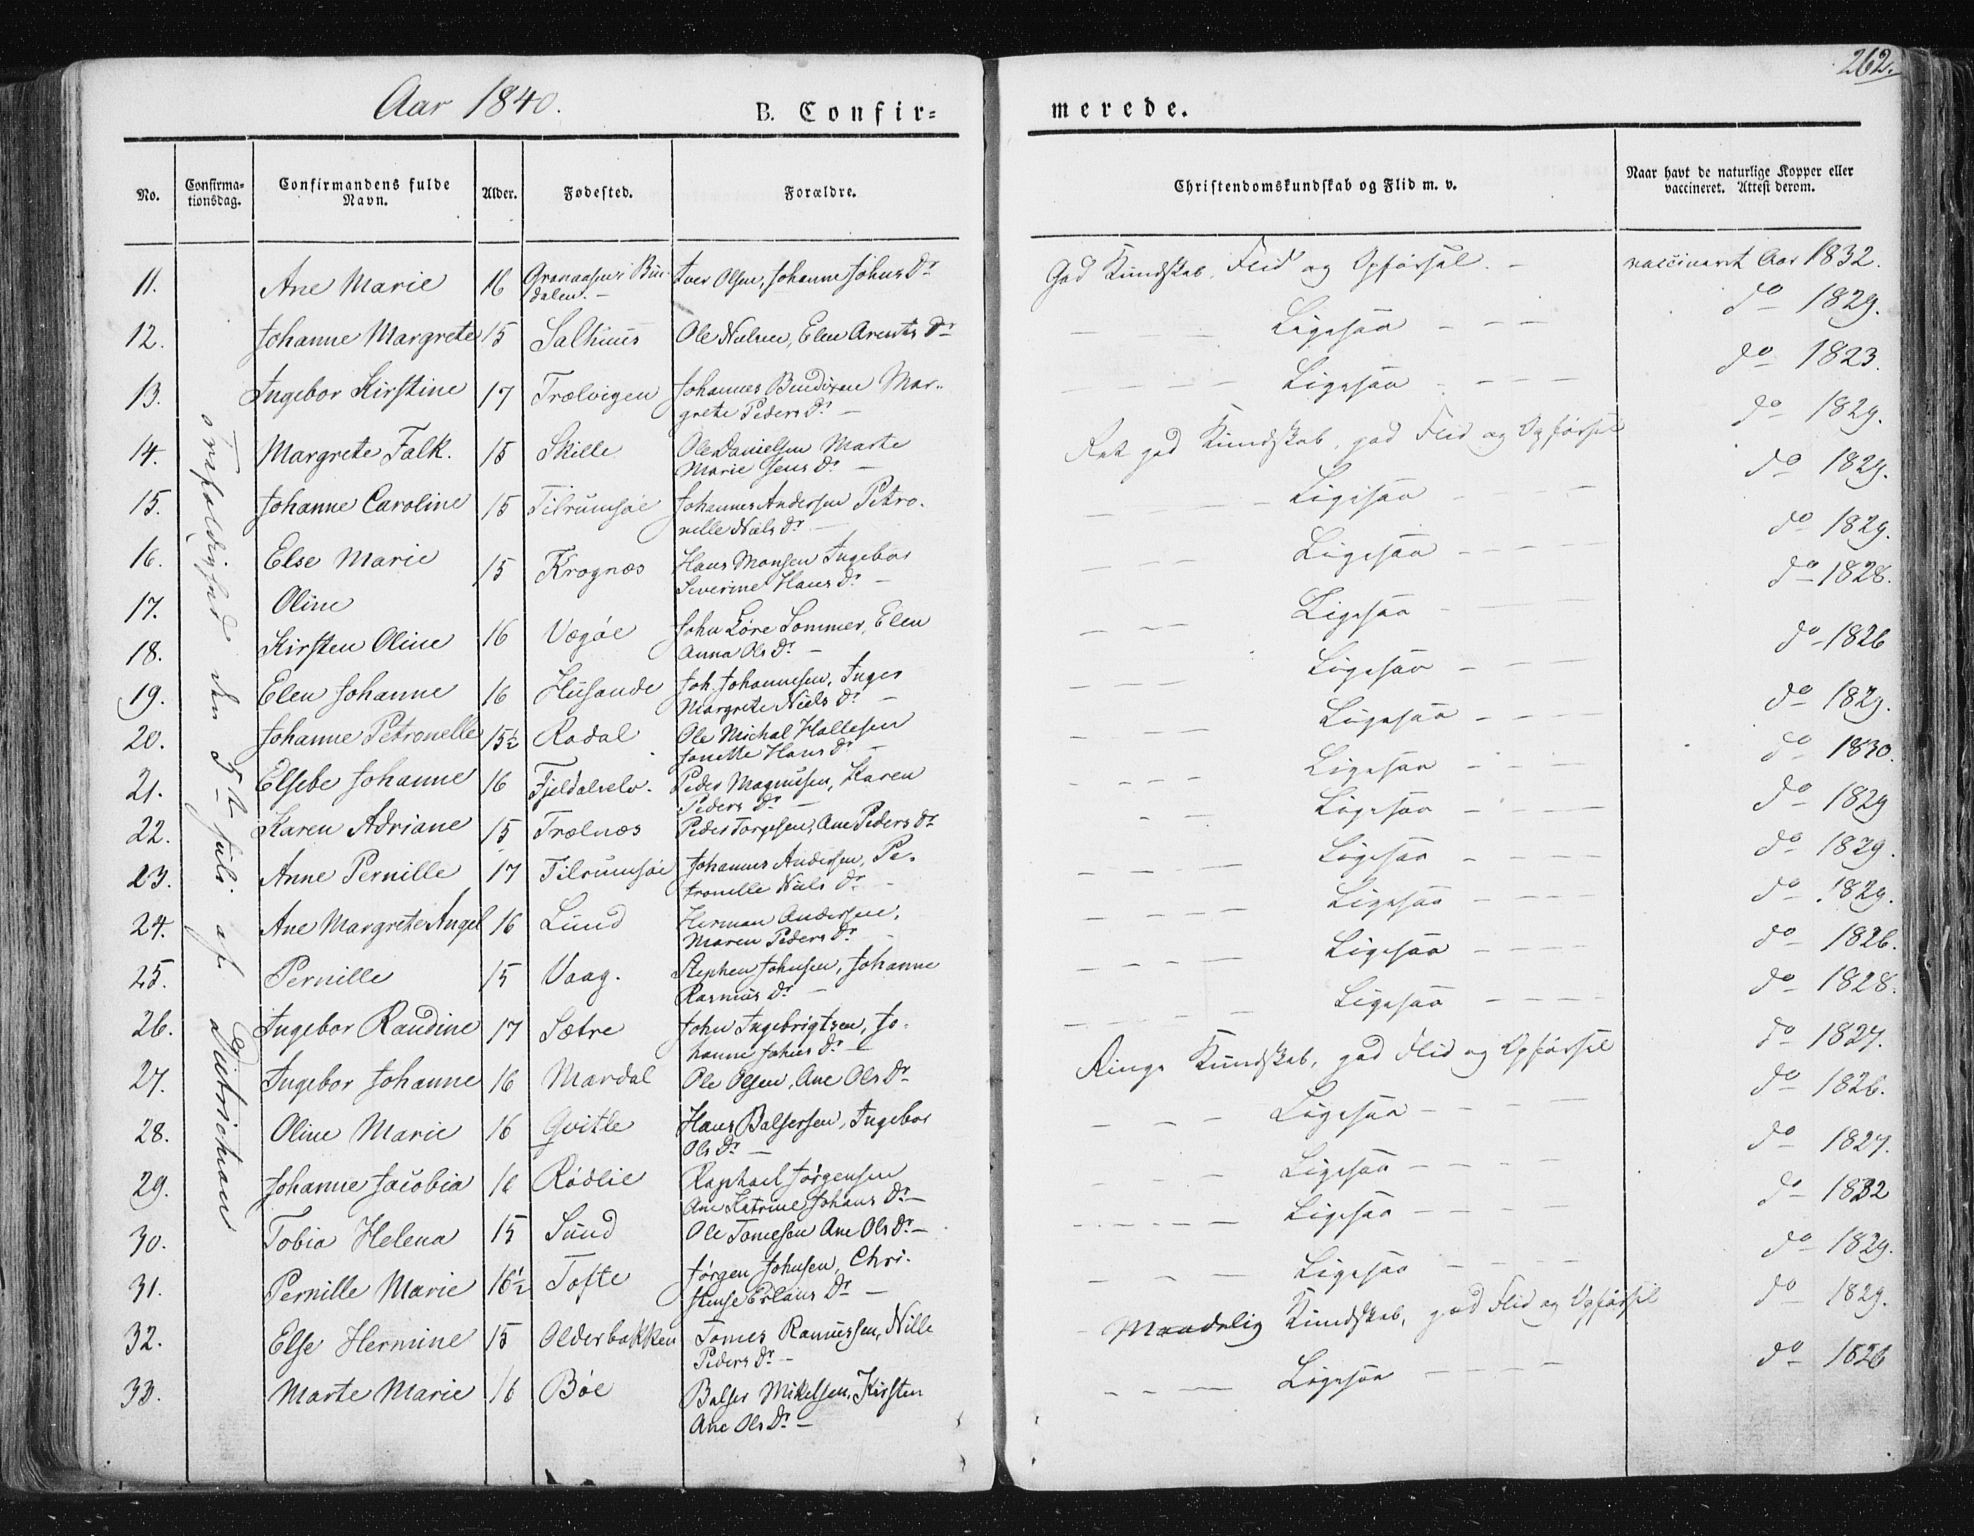 262.
Aar 1840.
B. Confir=
merede.
No.
Confirma=
tionsdag.
Confirmandens fulde
Navn.
Alder.
Fødested.
Forældre.
Christendomskundskab og Flid m. v.
Naar havt de naturlige Kopper eller
vaccineret. Attest derom.
den 5te Juli af Dietrichson
11. Ane Marie 16 Granaasen i Bin-
dalen. Iver Olsen, Johanne Johns Dr God Kundskab, Flid og Opførsel. vaccineret Aar 1832.
12. Johanne Margrete 15 Salhuus Ole Nielsen, Elen Arents Dr Ligesaa do 1829.
13. Ingebor Kirstine 17 Trælvigen Johannes Bendixen Mar-
grete Peders Dr Ligesaa do 1823.
14. Margrete Falk. 15 Skille Ole Danielsen Marte
Marie Jens Dr Ret god Kundskab, god Flid og Opførsel do 1829.
15. Johanne Caroline 15 Tilrumsøe Johannes Andersen Petro-
nelle Niels Dr Ligesaa do 1829.
16. Else Marie 15 Krognæs Hans Monsen Ingebor
Severine Hans Dr Ligesaa do 1829.
17. Oline Ligesaa do 1828.
18. Kirsten Oline 16 Vægøe John Løre Sommer, Elen
Anna Ols Dr Ligesaa do 1826
19. Elen Johanne 16 Husande Joh. Johannesen, Inger
Margrete Niels Dr Ligesaa do 1829.
20. Johanne Petronelle 15½ Rodal Ole Michal Hallesen
Jonette Hans Dr Ligesaa do 1830.
21. Elsebe Johanne 16 Fjeldalselv. Peder Magnusen, Karen
Peders Dr Ligesaa do 1829
22. Karen Adriane 15 Trælnæs Peder Torgesen, Ane Peders Dr Ligesaa do 1829.
23. Anne Pernille 17 Tilrumsøe Johannes Andersen, Pe-
tronelle Niels Dr Ligesaa do 1829.
24. Ane Margrete Angel 16 Lund Herman Andersen,
Maren Peders Dr Ligesaa do 1826.
25. Pernille 15 Vaag. Stephen Johnsen, Johanne
Rasmus Dr Ligesaa do 1828.
26. Ingebor Raudine 17 Sætre John Ingebrigtsen, Jo-
hanne Johns Dr Ringe Kundskab, god Flid og Opførsel do 1827.
27. Ingebor Johanne 16 Mardal Ole Olsen, Ane Ols Dr Ligesaa do 1826.
28. Oline Marie 16 Qvitle Hans Balsersen, Ingebor
Ols Dr Ligesaa do 1827.
29. Johanne Jacobia 16 Rødlie Raphael Jørgensen
Ane Katrine Johans Dr Ligesaa do 1832
30. Tobia Helena 15 Sund Ole Tomesen Ane Ols Dr Ligesaa do 1829.
31. Pernille Marie 16½ Tofte Jørgen Johnsen, Chri-
stense Erlans Dr Maadelig Kundskab, god Flid og Opførsel do 1829.
32. Else Hermine 15 Olderbakken Tomes Rasmussen, Nille
Peders Dr Ligesaa do 1826
33. Marte Marie 16 Bøe Balser Mikelsen, Kirsten
Ane Ols Dr